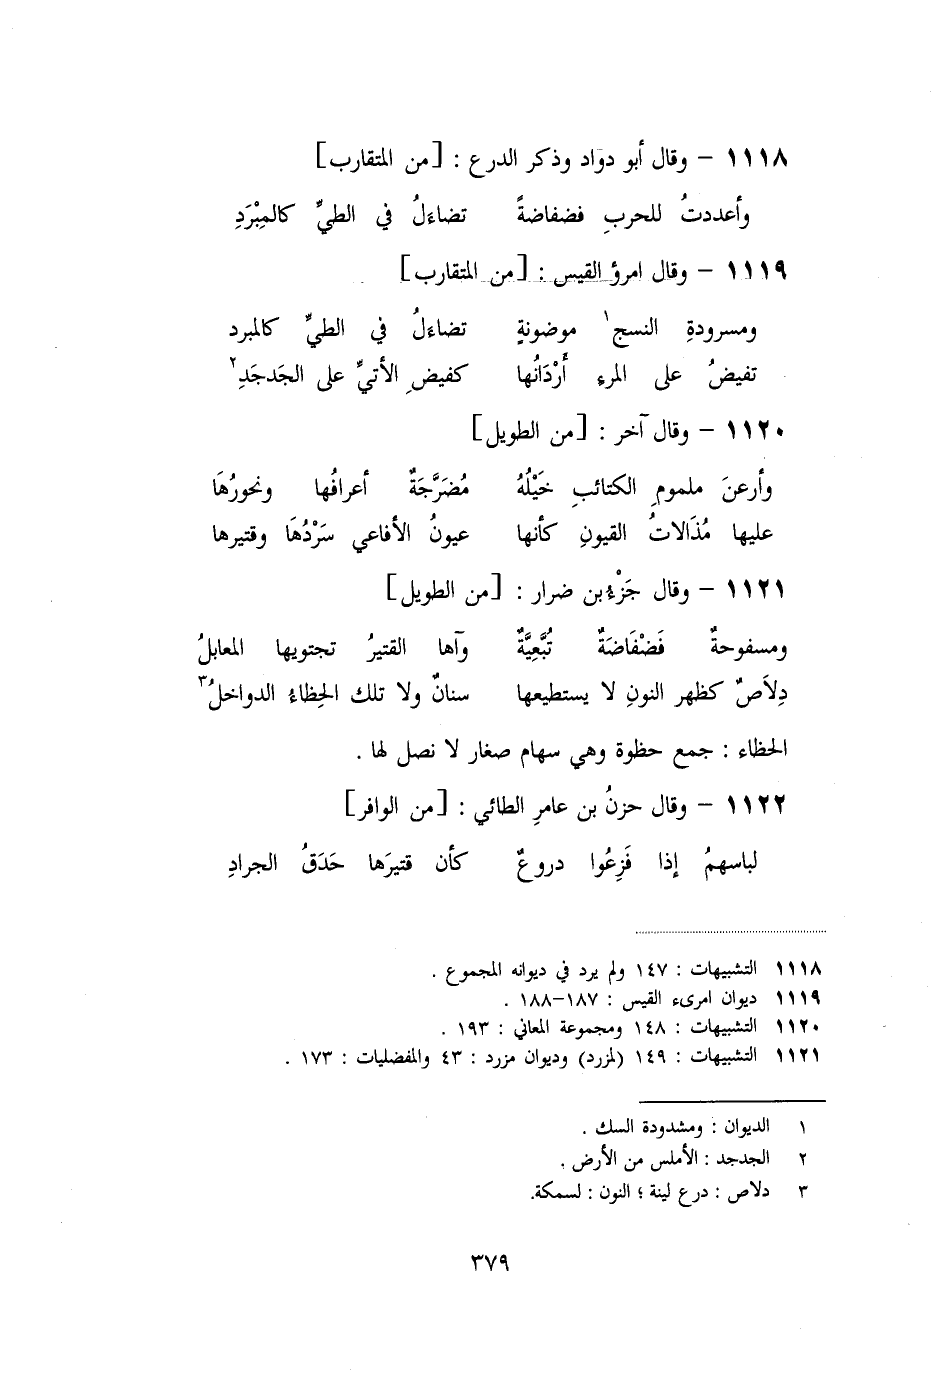 ١١١٨ – وقال أبو دواد وذكر الدرع : [من المتقارب]
وأعددتُ للحربِ فضفاضةً تضاءَلُ في الطيِّ كالمِبْرَدِ
١١١٩ – وقال امرؤ القيس : [من المتقارب]
ومسرودةِ النسج١ موضونةٍ تضاءَلُ في الطيِّ كالمبرد
تفيضُ على المرء أَرْدَانُها كفيضِ الأتيِّ على الجَدجَدِ٢
١١٢٠ – وقال آخر : [من الطويل]
وأرعنَ ملمومِ الكتائبِ خَيْلُهُ مُضَرَّجَةٌ أعرافُها ونحورُهَا
عليها مُذَالاتُ القيونِ كأنها عيونُ الأفاعي سَرْدُهَا وقتيرها
١١٢١ – وقال جَزْءُ بن ضرار : [من الطويل]
ومسفوحةٌ فَضْفَاضَةٌ تُبَّعِيَّةٌ وآها القتيرُ تجتويها المعابلُ
دِلاَصٌ كظهر النونِ لا يستطيعها سنانٌ ولا تلك الحِظاءُ الدواخلُ٣
الحظاء : جمع حظوة وهي سهام صغار لا نصل لها .
١١٢٢ – وقال حزنُ بن عامرِ الطائي : [من الوافر]
لباسهمُ إذا فَزِعُوا دروعٌ كأن قتيرَها حَدَقُ الجرادِ
١١١٨ التشبيهات : ١٤٧ ولم يرد في ديوانه المجموع .
١١١٩ ديوان امرىء القيس : ١٨٧–١٨٨ .
١١٢٠ التشبيهات : ١٤٨ ومجموعة المعاني : ١٩٣ .
١١٢١ التشبيهات : ١٤٩ (لمزرد) وديوان مزرد : ٤٣ والمفضليات : ١٧٣ .
١ الديوان : ومشدودة السك .
٢ الجدجد : الأملس من الأرض .
٣ دلاص : درع لينة ؛ النون : لسمكة.
٣٧٩